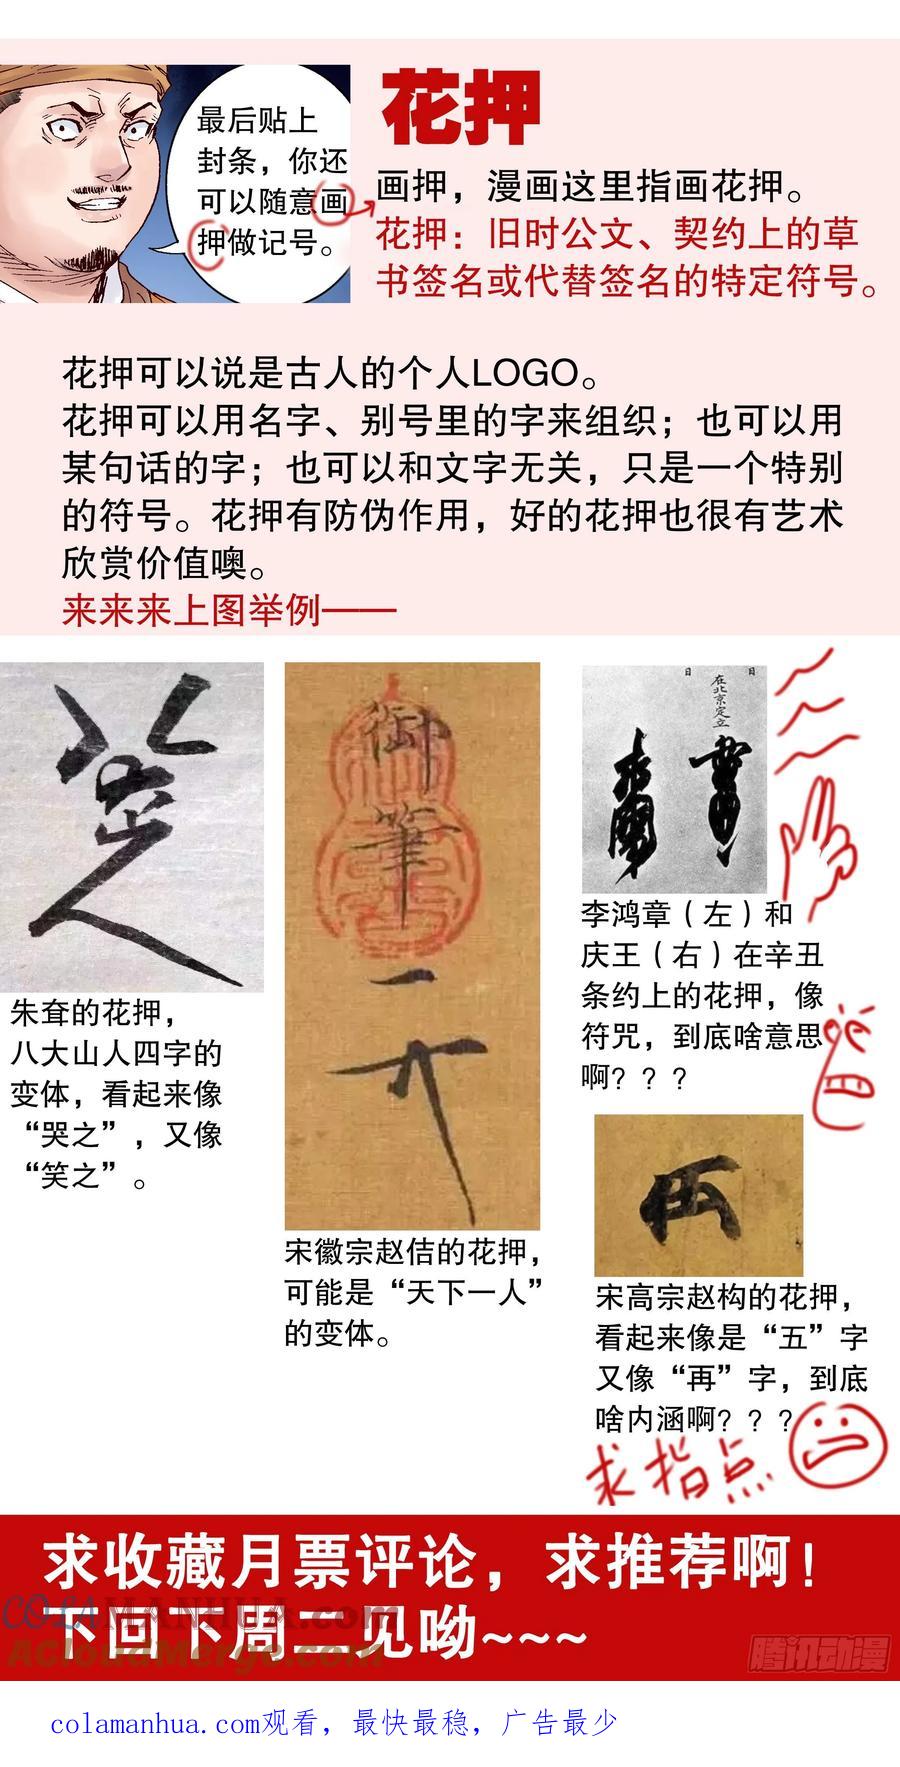 花押
最后贴上
封条，你还
可以随意画
押做记号。
画押，漫画这里指画花押。
花押：旧时公文、契约上的草
书签名或代替签名的特定符号。
花押可以说是古人的个人LOGO。
花押可以用名字、别号里的字来组织；也可以用
某句话的字；也可以和文字无关，只是一个特别
的符号。花押有防伪作用，好的花押也很有艺术
欣赏价值噢。
来来来上图举例——
朱耷的花押，
八大山人四字的
变体，看起来像
“哭之”，又像
“笑之”。
御筆
宋徽宗赵佶的花押，
可能是“天下一人”
的变体。
日 日
在北京定立
李鸿章（左）和
庆王（右）在辛丑
条约上的花押，像
符咒，到底啥意思
啊？？？
宋高宗赵构的花押，
看起来像是“五”字
又像“再”字，到底
啥内涵啊？？？
求指点
求收藏月票评论，求推荐啊！
下回下周二见呦~~~
COLAMANHUA.com
AcloudMerge.com
腾讯动漫
colamanhua.com观看，最快最稳，广告最少